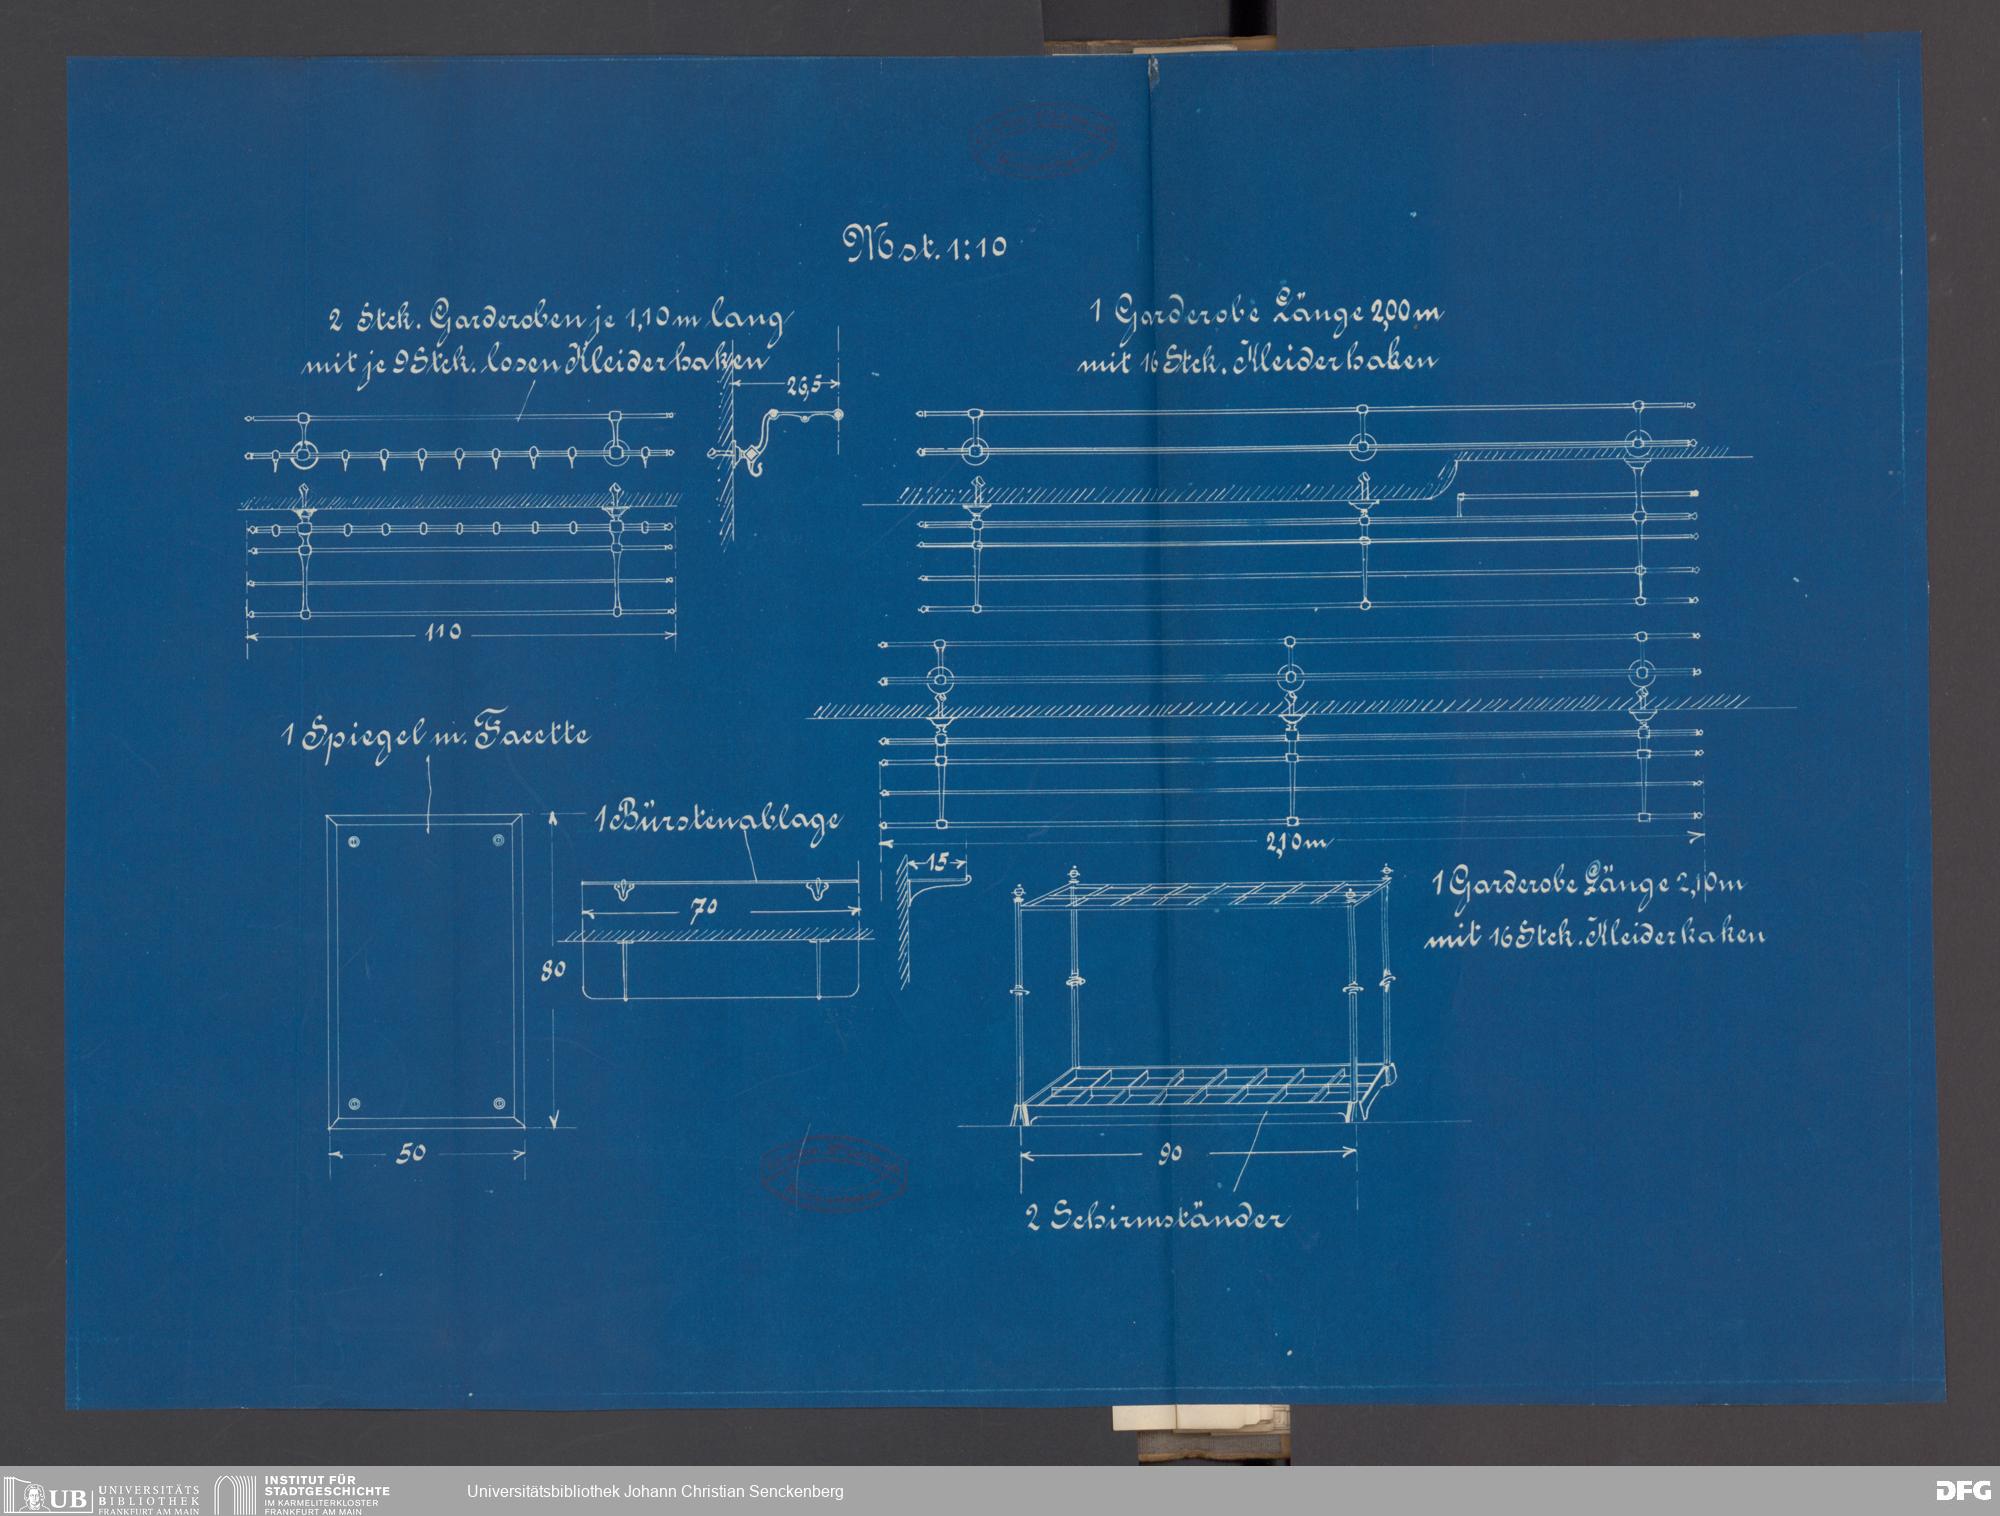 Mst. 1:10
2 Stck. Garderoben je 1,10 m lang
mit je 9 Stck. losen Kleiderhaken
26,5
110
1 Garderobe Länge 2,00 m
mit 16 Stck. Kleiderhaken
2,10 m
1 Garderobe Länge 2,10 m
mit 16 Stck. Kleiderhaken
1 Spiegel m. Facette
80
50
1 Bürstenablage
70
15
90
2 Schirmständer
UB
UNIVERSITÄTS
BIBLIOTHEK
FRANKFURT AM MAIN
INSTITUT FÜR
STADTGESCHICHTE
IM KARMELITERKLOSTER
FRANKFURT AM MAIN
Universitätsbibliothek Johann Christian Senckenberg
DFG